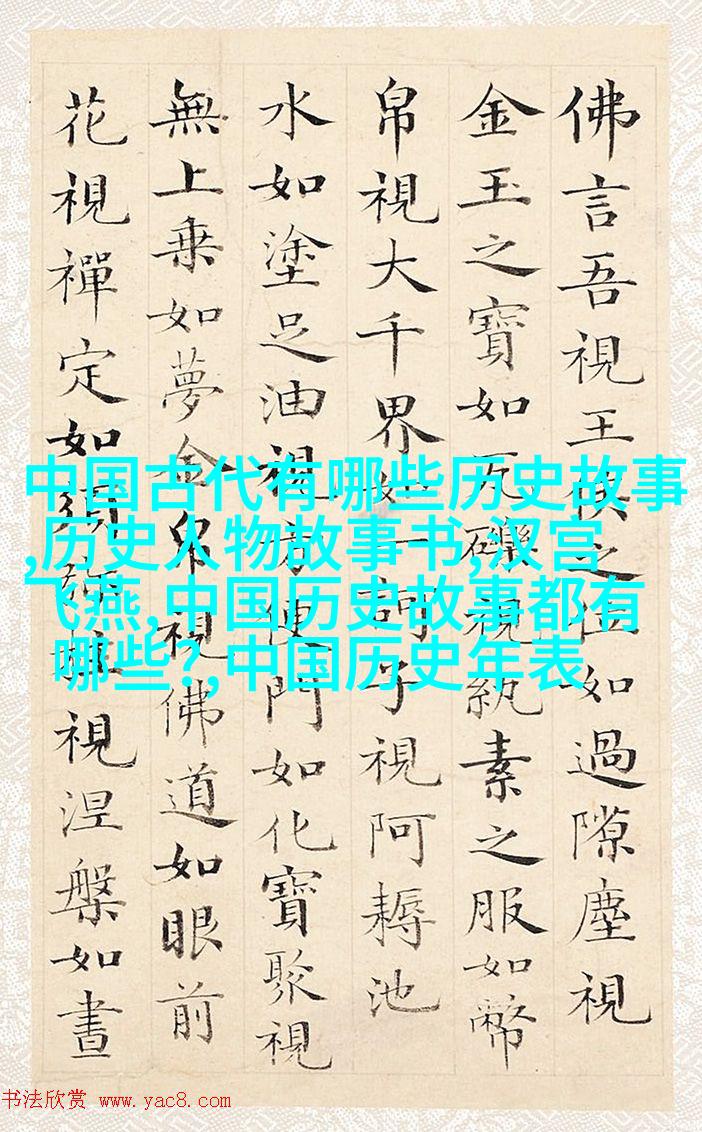 佛言吾視王侯之位如過隙塵視
金玉之寶如瓦礫視紈素之服如幣
帛視大千界如一訶子視阿耨池
水如塗足油視方便門如化寶聚視
無上乗如夢金帛視佛道如眼前
花視禪定如須彌柱視涅槃如晝
中国古代有哪些历史故事
,历史人物故事书,汉宫
飞燕,中国历史故事都有
哪些?,中国历史年表
书法欣赏 www.yac8.com